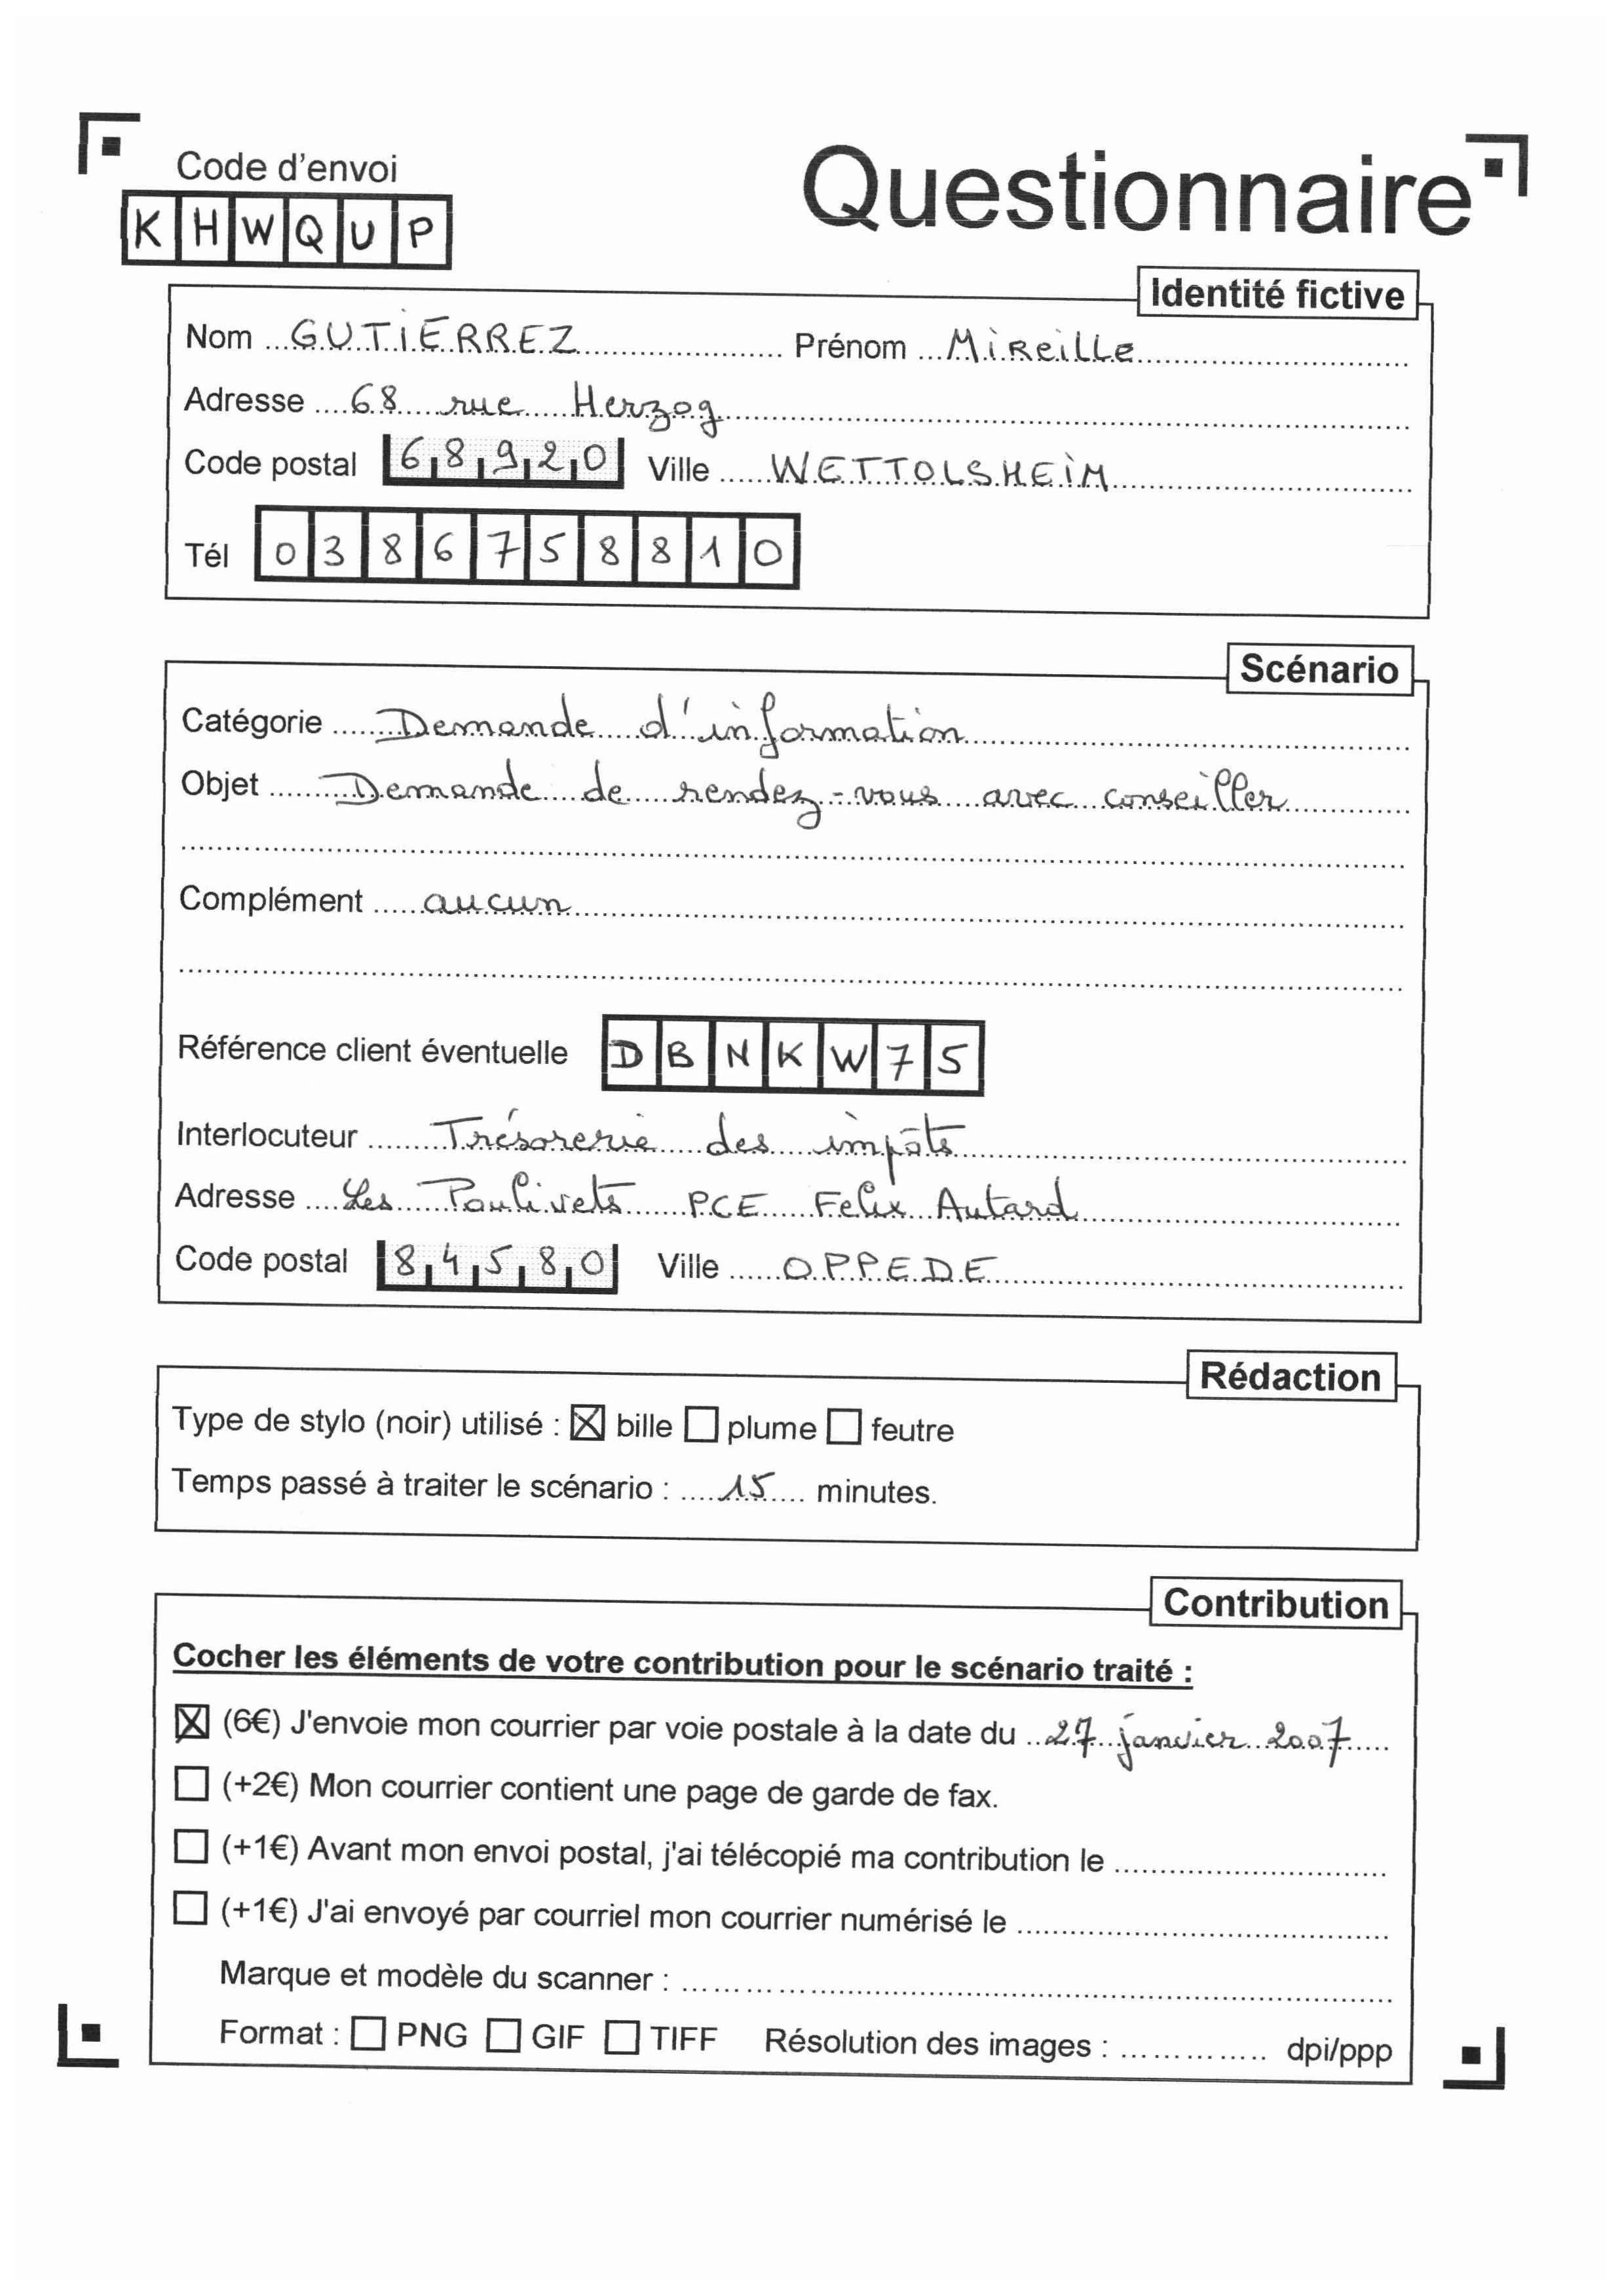 Code d'envoi
Questionnaire
KHWQUP
Identité fictive
Nom GUTIERREZ Prénom Mireille
Adresse 68 rue Herzog
Code postal 68920 Ville WETTOLSHEIM
Tél 0386758810
Scénario
Catégorie Demande d'information
Objet Demande de rendez-vous avec conseiller
Complément aucun
Référence client éventuelle DBNKW75
Interlocuteur Trésorerie des impôts
Adresse Les Poulivets PCE Felix Autard
Code postal 84580 Ville OPPEDE
Rédaction
Type de stylo (noir) utilisé : ☒ bille ☐ plume ☐ feutre
Temps passé à traiter le scénario : 15 minutes.
Contribution
Cocher les éléments de votre contribution pour le scénario traité :
☒ (6€) J'envoie mon courrier par voie postale à la date du 27 janvier 2007
☐ (+2€) Mon courrier contient une page de garde de fax.
☐ (+1€) Avant mon envoi postal, j'ai télécopié ma contribution le
☐ (+1€) J'ai envoyé par courriel mon courrier numérisé le
Marque et modèle du scanner :
Format : ☐ PNG ☐ GIF ☐ TIFF Résolution des images : dpi/ppp